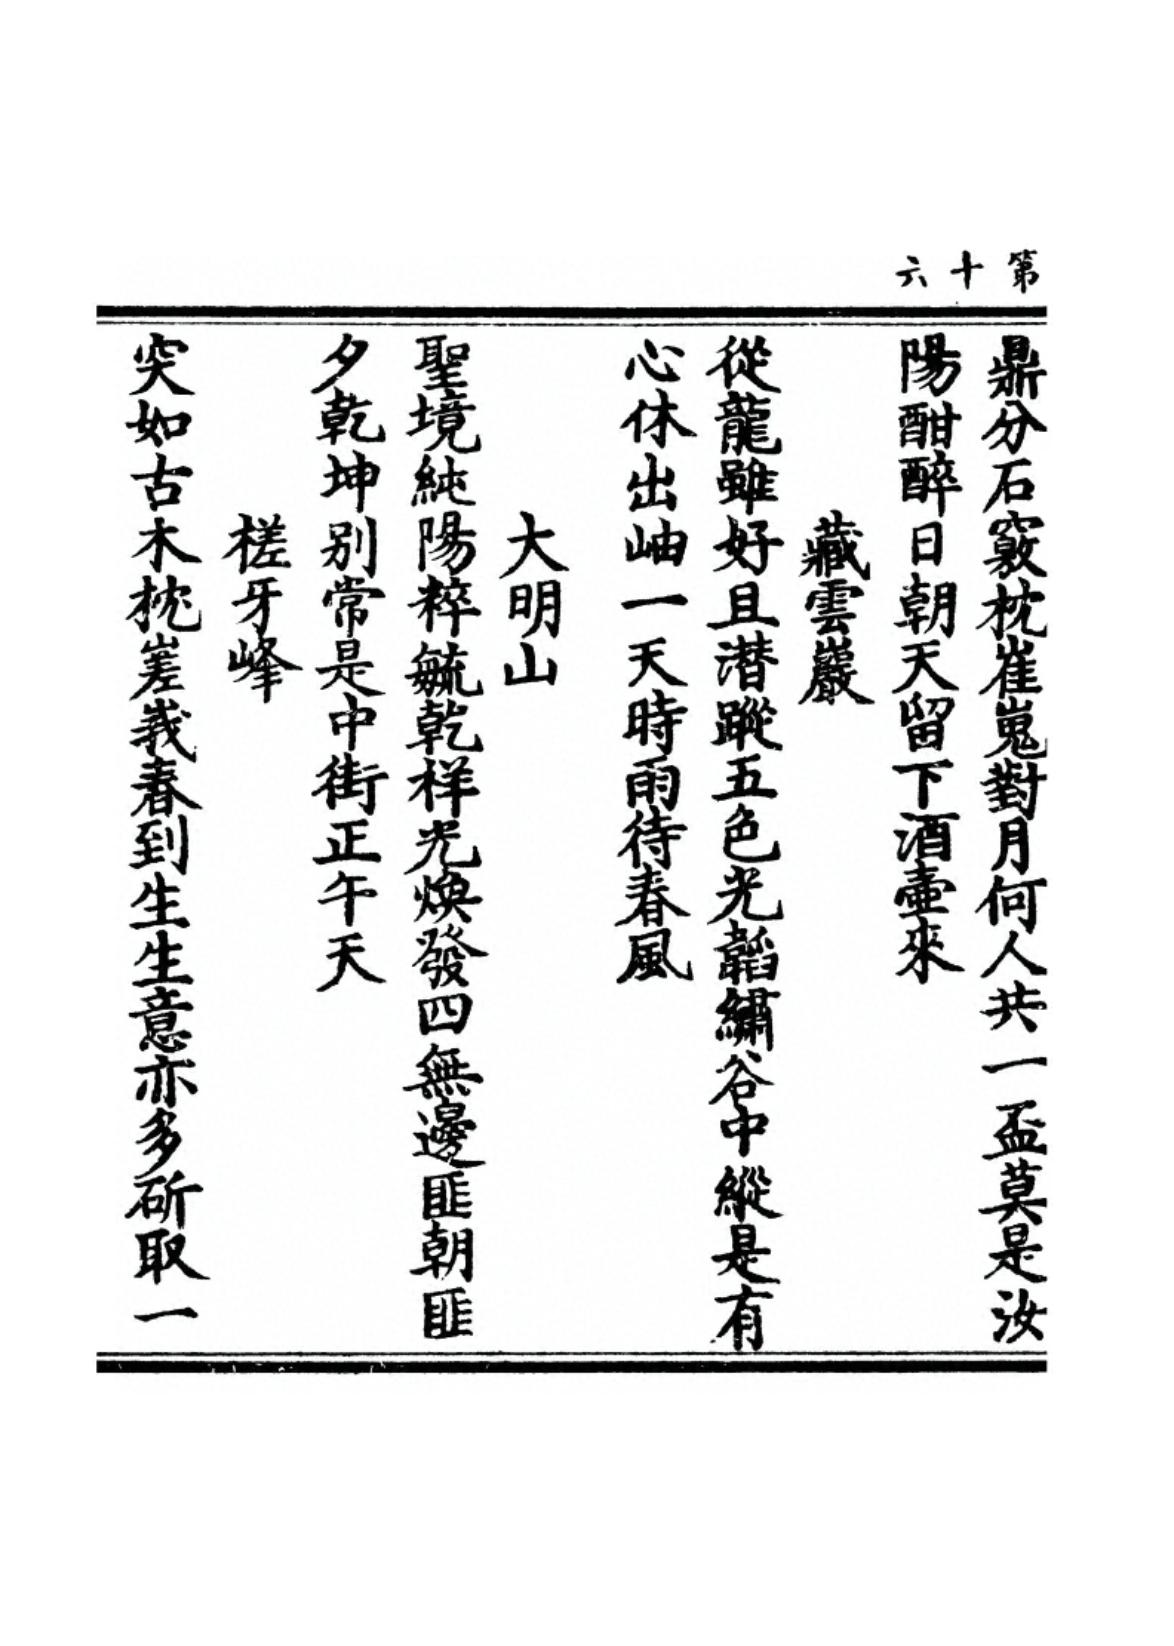 第十六
鼎分石竅枕崔嵬對月何人共一盃莫是汝
陽酣醉日朝天留下酒壷來
藏雲巖
從龍雖好且潜蹤五色光韜繡谷中縱是有
心休出岫一天時雨待春風
大明山
聖境純陽粹毓乾祥光煥發四無邊匪朝匪
夕乾坤别常是中街正午天
槎牙峰
突如古木枕嵳峩春到生生意亦多斫取一